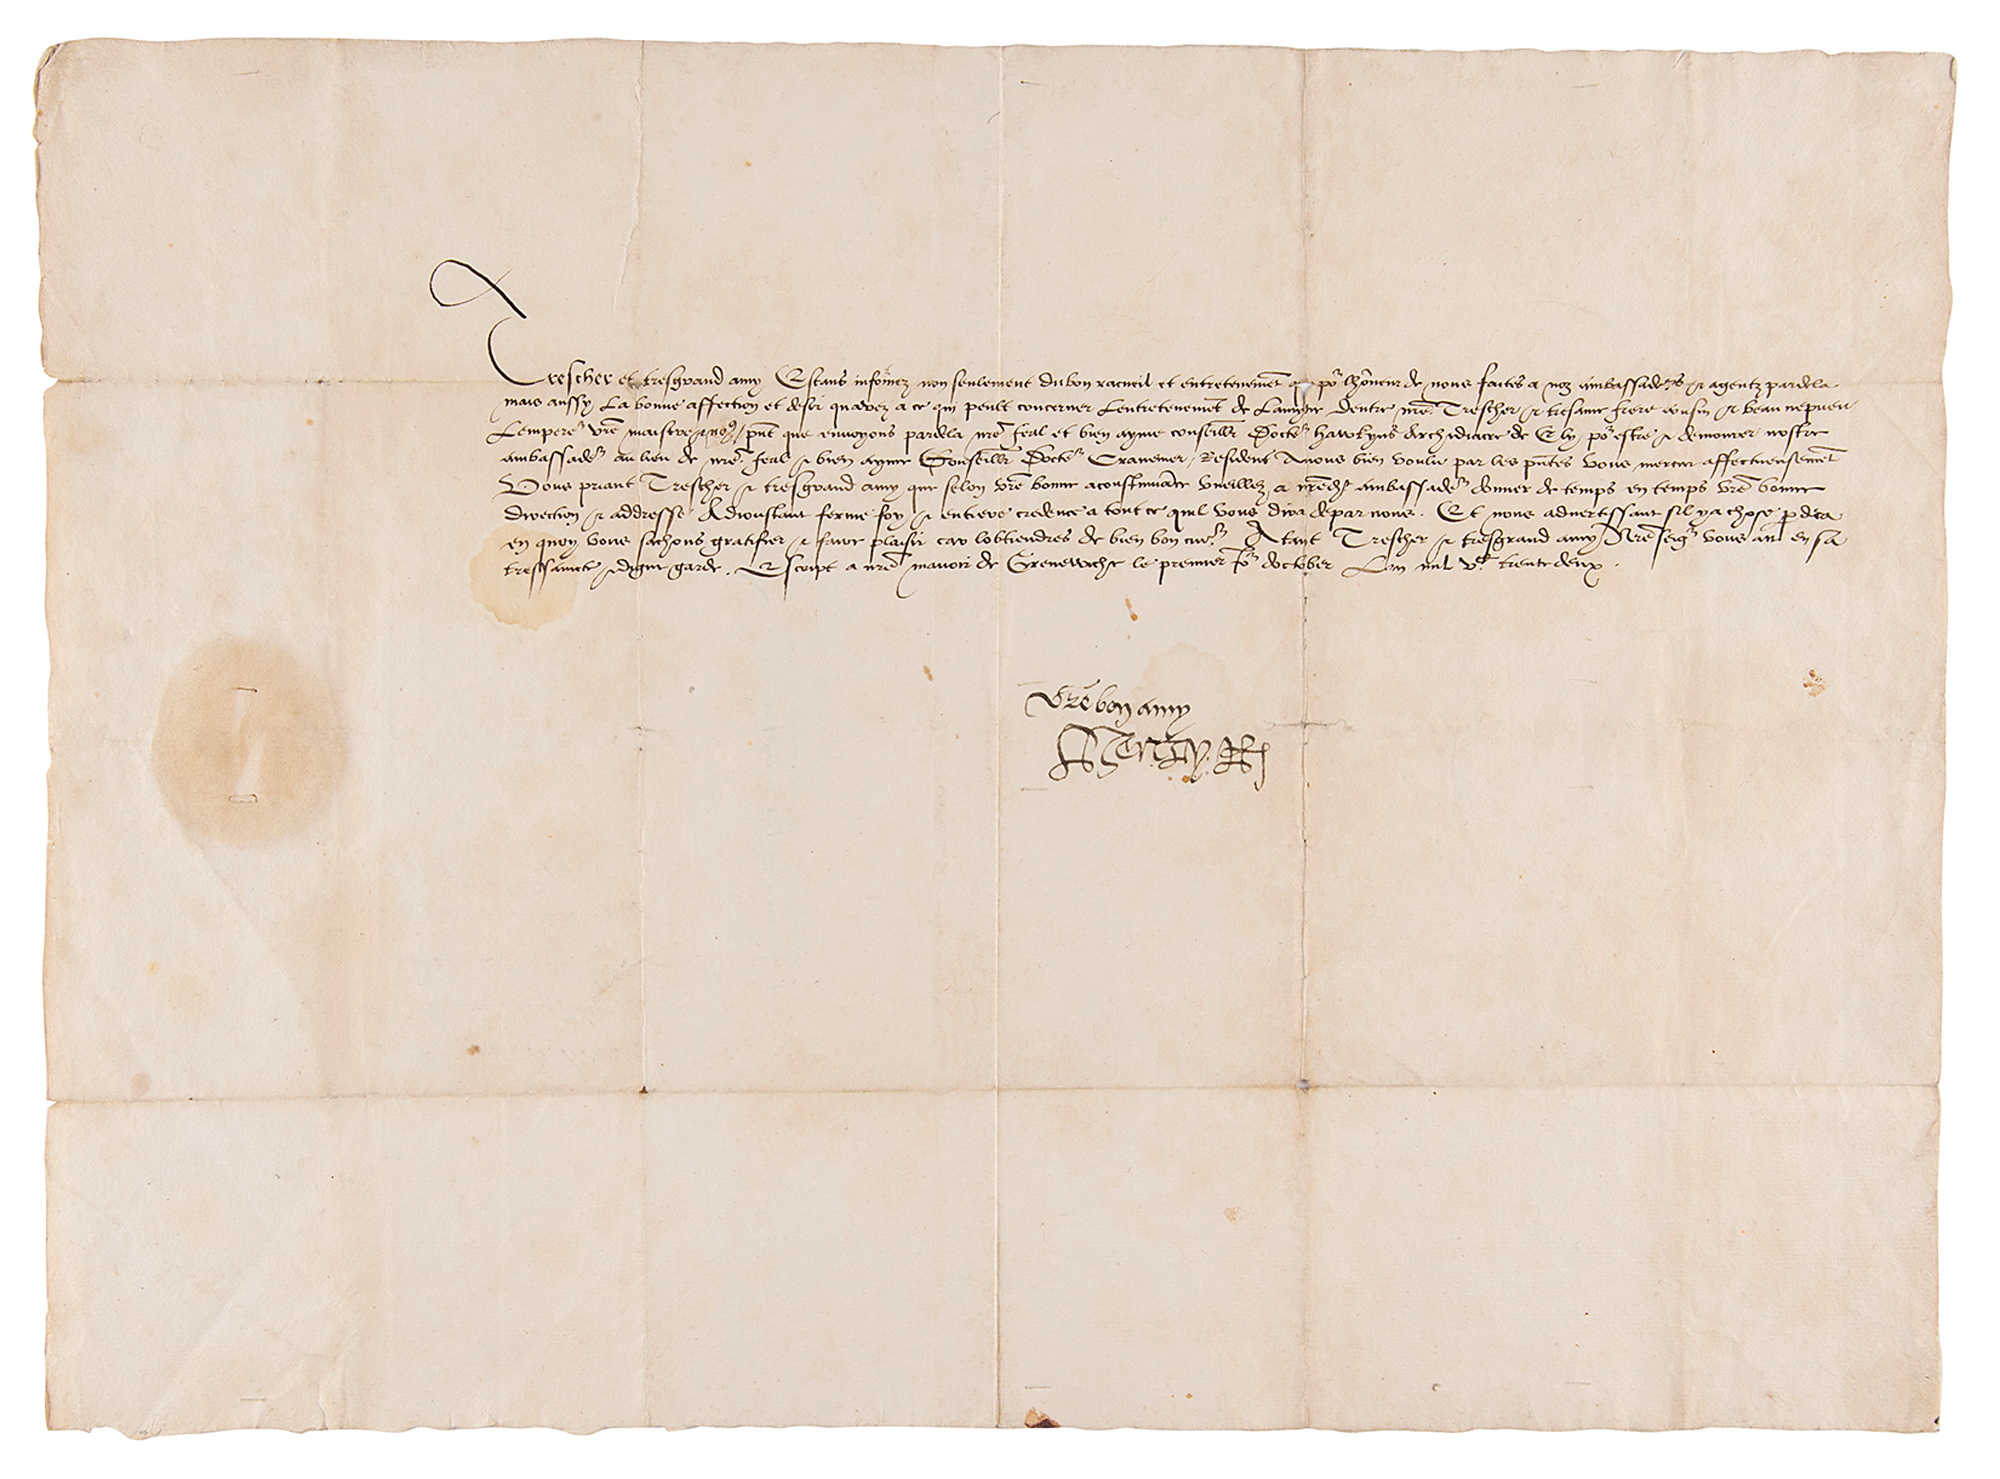 Trescher et tresgrand amy Estans informez non seulement du bon racueil et entretenement que po͛ lhoneur de nous faites a noz ambassades͛rs et agentz pardela
mais aussy La bonne affection et desir quavez a ce qui peult concerner Lentretenement de Lamytie Dentre nre Trescher et tresame frere cousin et beau nepveu
Lempere͛ vre maistre et nous / pnt que envoyons pardela nre feal et bien ayme conseillr Docte͛ Hawkyns Archidiacre de Ely po͛ estre et demourer nostre
ambassade͛ au lieu de nre feal et bien ayme Conseillr Docte͛ Cranemer, Resident Avons bien voulu par les pntes vous mercier affectueusemet
Vous priant Trescher et tresgrand amy que selon vre bonne acoustumance vueillez a nred͛ ambassade͛ donner de temps en temps vre bonne
direction et addresse Adioustant ferme foy et entiere credence a tout ce quil vous dira depar nous. Et nous advertissant sil ya chose p deca
en quoy vous sachons gratifier et faire plaisir car lobtiendres de bien bon cue͛r. Atant Trescher et tresgrand amy Nre seig͛ vous ait en sa
tressaincte et digne garde. Escript a nre manoir de Grenewiche le premier Jo͛ doctober Lan mil vc trente deux.
Vre bon amy
Henry R